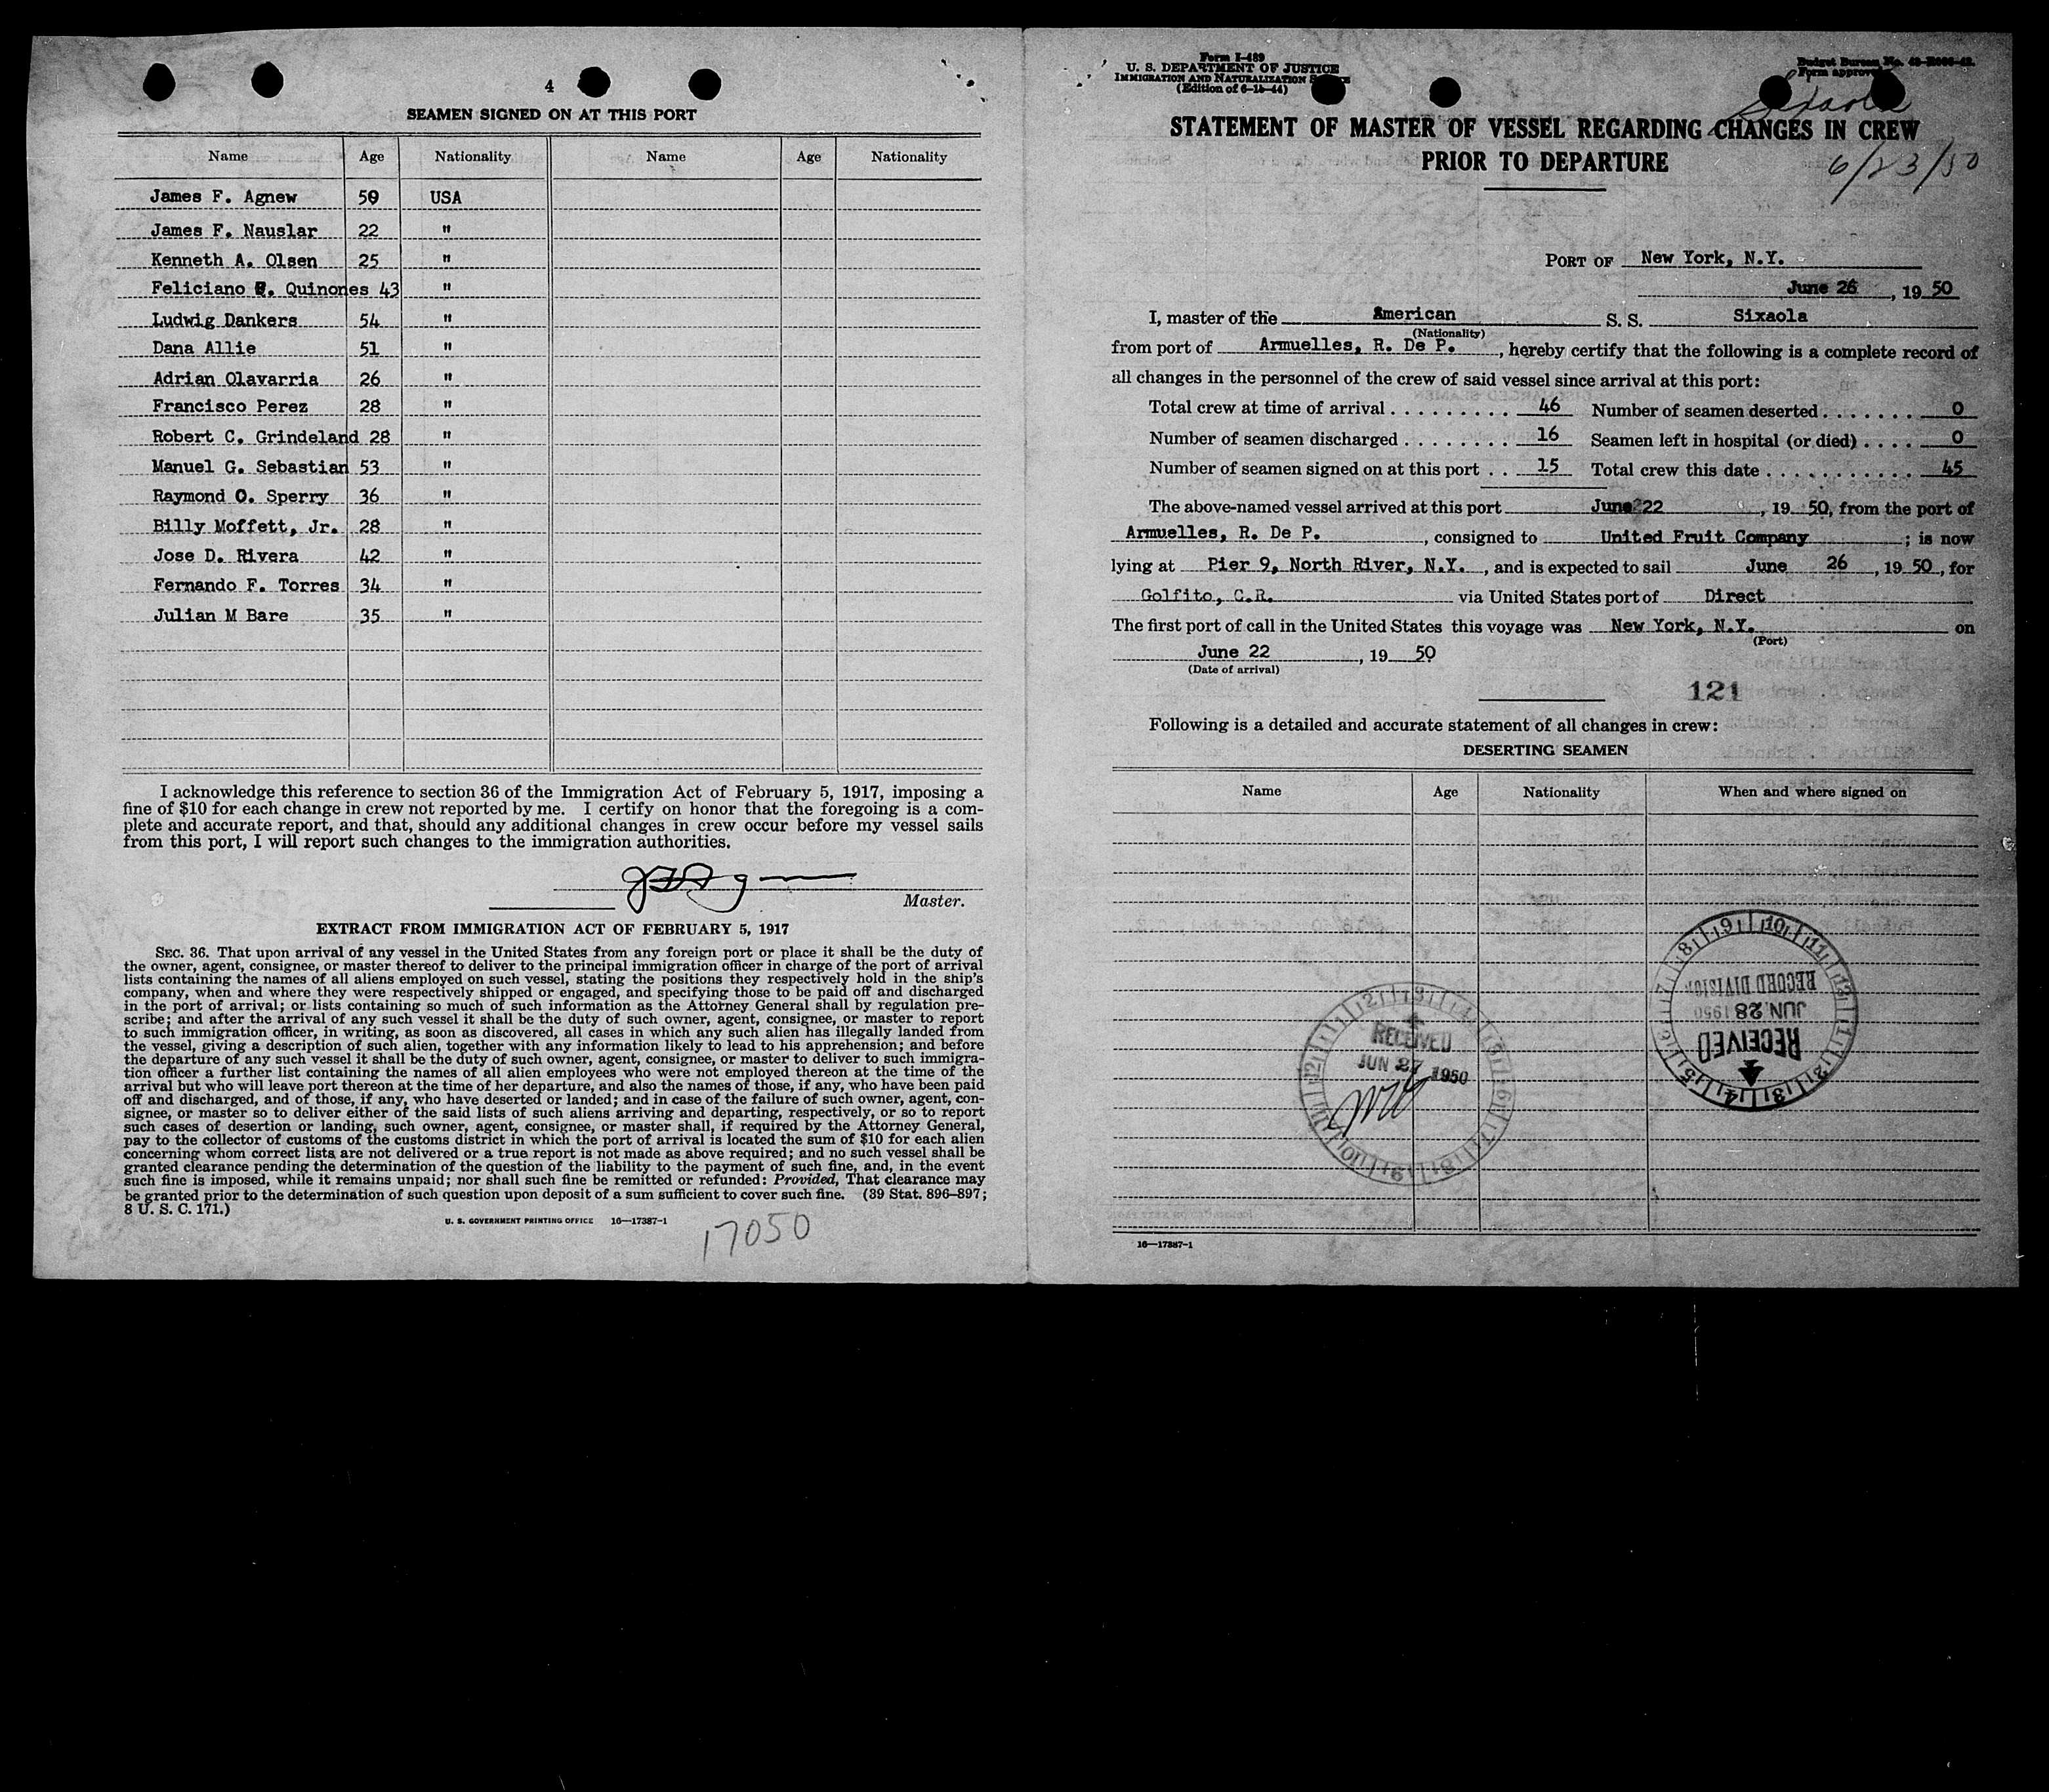 4
SEAMEN SIGNED ON AT THIS PORT
Name Age Nationality Name Age Nationality
James F. Agnew 50 USA
James F. Nauslar 22 "
Kenneth A. Olsen 25 "
Feliciano Quinones 43 "
Ludwig Dankers 54 "
Dana Allie 51 "
Adrian Olavarria 26 "
Francisco Perez 28 "
Robert C. Grindeland 28 "
Manuel G. Sebastian 53 "
Raymond O. Sperry 36 "
Billy Moffett, Jr. 28 "
Jose D. Rivera 42 "
Fernando F. Torres 34 "
Julian M Bare 35 "
I acknowledge this reference to section 36 of the Immigration Act of February 5, 1917, imposing a
fine of $10 for each change in crew not reported by me. I certify on honor that the foregoing is a com-
plete and accurate report, and that, should any additional changes in crew occur before my vessel sails
from this port, I will report such changes to the immigration authorities.
Master.
EXTRACT FROM IMMIGRATION ACT OF FEBRUARY 5, 1917
SEC. 36. That upon arrival of any vessel in the United States from any foreign port or place it shall be the duty of
the owner, agent, consignee, or master thereof to deliver to the principal immigration officer in charge of the port of arrival
lists containing the names of all aliens employed on such vessel, stating the positions they respectively hold in the ship's
company, when and where they were respectively shipped or engaged, and specifying those to be paid off and discharged
in the port of arrival; or lists containing so much of such information as the Attorney General shall by regulation pre-
scribe; and after the arrival of any such vessel it shall be the duty of such owner, agent, consignee, or master to report
to such immigration officer, in writing, as soon as discovered, all cases in which any such alien has illegally landed from
the vessel, giving a description of such alien, together with any information likely to lead to his apprehension; and before
the departure of any such vessel it shall be the duty of such owner, agent, consignee, or master to deliver to such immigra-
tion officer a further list containing the names of all alien employees who were not employed thereon at the time of the
arrival but who will leave port thereon at the time of her departure, and also the names of those, if any, who have been paid
off and discharged, and of those, if any, who have deserted or landed; and in case of the failure of such owner, agent, con-
signee, or master so to deliver either of the said lists of such aliens arriving and departing, respectively, or so to report
such cases of desertion or landing, such owner, agent, consignee, or master shall, if required by the Attorney General,
pay to the collector of customs of the customs district in which the port of arrival is located the sum of $10 for each alien
concerning whom correct lists are not delivered or a true report is not made as above required; and no such vessel shall be
granted clearance pending the determination of the question of the liability to the payment of such fine, and, in the event
such fine is imposed, while it remains unpaid; nor shall such fine be remitted or refunded: Provided, That clearance may
be granted prior to the determination of such question upon deposit of a sum sufficient to cover such fine. (39 Stat. 896–897;
8 U. S. C. 171.)
U. S. GOVERNMENT PRINTING OFFICE 16—17387-1
17050
Form I-489
U. S. DEPARTMENT OF JUSTICE
IMMIGRATION AND NATURALIZATION
(Edition of 6-15-44)
Budget Bureau No.
Form approved
Sixaola
STATEMENT OF MASTER OF VESSEL REGARDING CHANGES IN CREW
PRIOR TO DEPARTURE
6/23/50
PORT OF New York, N.Y.
June 26, 1950
I, master of the American S. S. Sixaola
(Nationality)
from port of Armuelles, R. De P., hereby certify that the following is a complete record of
all changes in the personnel of the crew of said vessel since arrival at this port:
Total crew at time of arrival . . . . . . . . . 46 Number of seamen deserted . . . . . . . 0
Number of seamen discharged . . . . . . . . 16 Seamen left in hospital (or died) . . . . 0
Number of seamen signed on at this port . . 15 Total crew this date . . . . . . . . . . . 45
The above-named vessel arrived at this port June 22, 1950, from the port of
Armuelles, R. De P., consigned to United Fruit Company; is now
lying at Pier 9, North River, N.Y., and is expected to sail June 26, 1950, for
Golfito, C.R. via United States port of Direct
The first port of call in the United States this voyage was New York, N.Y. on
(Port)
June 22, 1950
(Date of arrival)
121
Following is a detailed and accurate statement of all changes in crew:
DESERTING SEAMEN
Name Age Nationality When and where signed on
RECEIVED
JUN 27 1950
RECORD DIVISION
JUN 28 1950
RECEIVED
16—17387-1